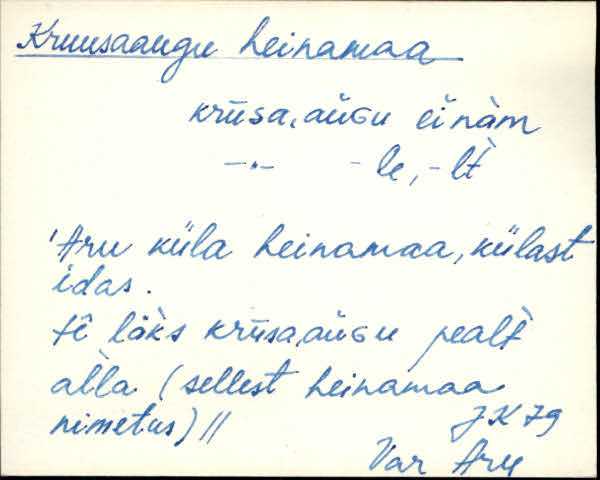 Kruusaaugu heinamaa
krūsa,aùGu eìnàm
—"— -le, -lt̀
'Aru küla heinamaa, külast
idas.
tê läks krūsa,aùGu pealt̀
al̀la (sellest heinamaa
nimetus) //
JK 79
Var Aru